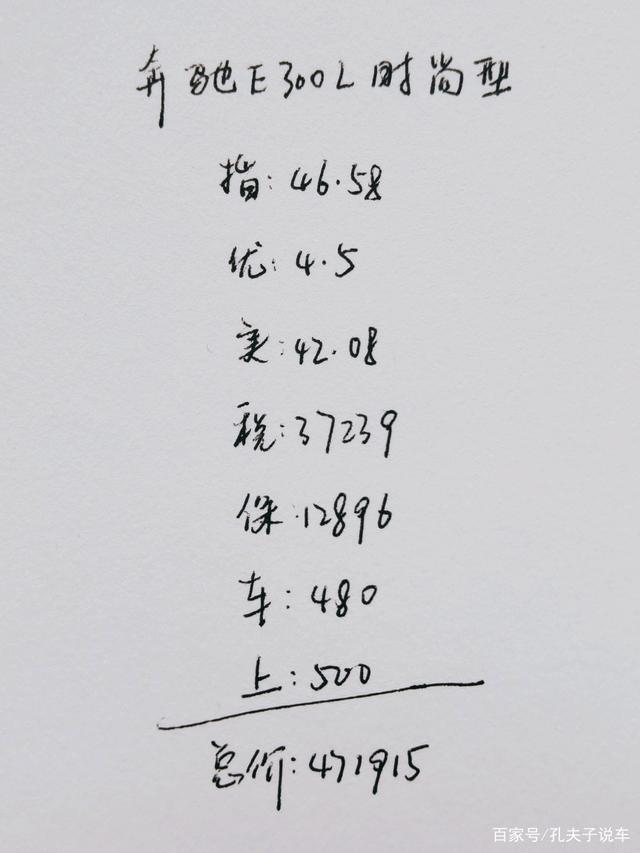 奔驰E300L时尚型
指:46.58
优:4.5
实:42.08
税:37239
保:12896
车:480
上:500
总价:471915
百家号/孔夫子说车